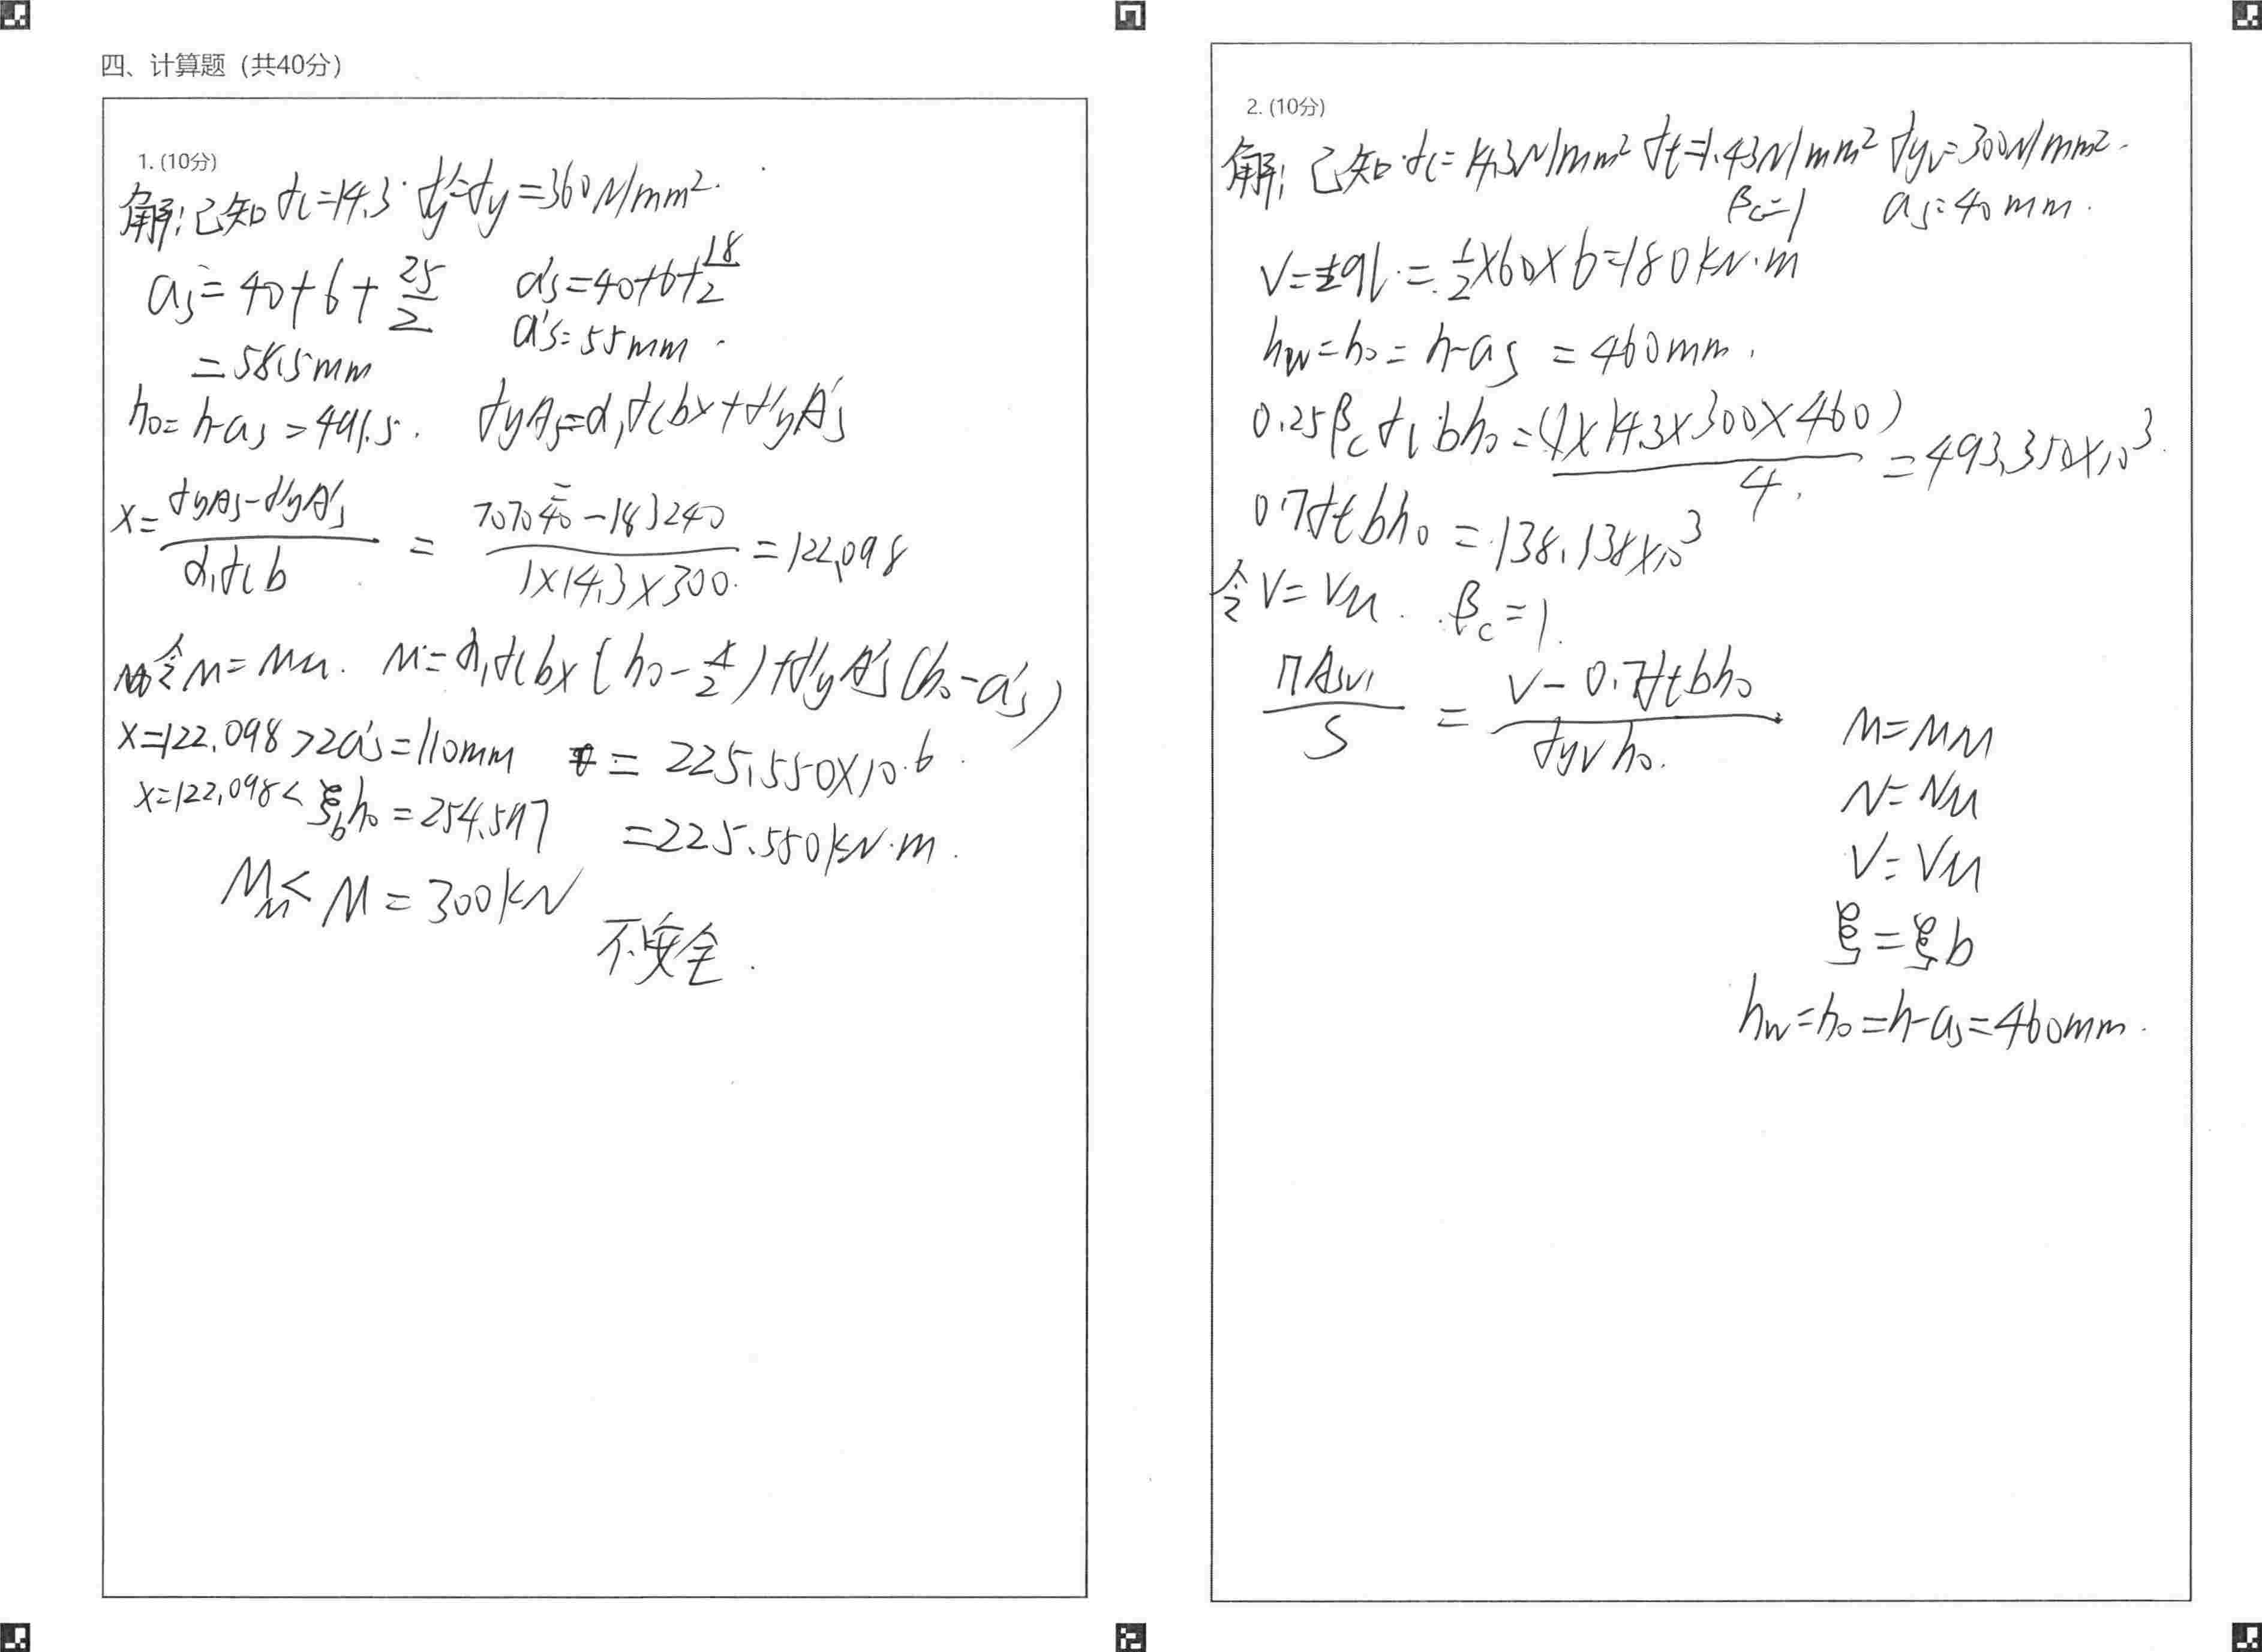 四、计算题（共40分）
1. (10分)
解：已知 fc=14.3 fy'=fy=360N/mm².
as=40+6+25/2 as'=40+6+18/2
=58.5mm as'=55mm.
h0=h-as=491.5. fyAs=α1fcbx+fy'As'
x=(fyAs-fy'As')/(α1fcb) = (707040-183240)/(1×14.3×300)=122.098
令M=Mu. M=α1fcbx(h0-x/2)+fy'As'(h0-as')
x=122.098>2as'=110mm = 225.550×10.6
x=122.098<ξbh0=254.597 =225.550kN.m.
Mu<M=300kN
不安全.
2. (10分)
解：已知 fc=14.3N/mm² ft=1.43N/mm² fyv=300N/mm².
βc=1 as=40mm.
V=½ql=½×60×6=180kN.m
hw=h0=h-as=460mm.
0.25βcfcbh0=(1×14.3×300×460)/4=493.350×10³.
0.7ftbh0=138.138×10³
令V=Vu. βc=1.
nAsv1/S = (V-0.7ftbh0)/(fyvh0.)
M=Mu
N=Nu
V=Vu
ξ=ξb
hw=h0=h-as=460mm.